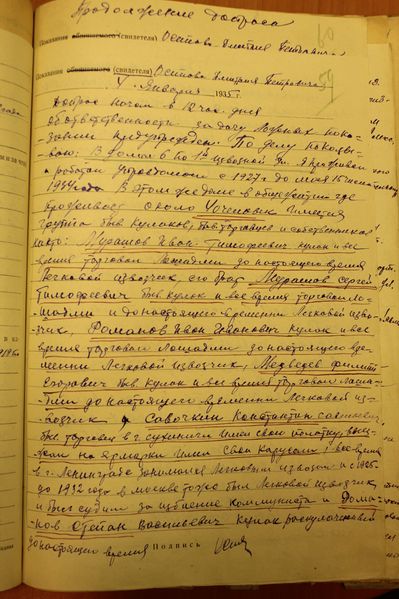 Продолжение допроса
Показания обвиняемого (свидетеля) Осипова Дмитрия Петровича
Показания обвиняемого (свидетеля) Осипова Дмитрия Петровича
4 Января 1935 г.
Допрос начат в 12 час. дня
об ответственности за дачу ложных пока-
зании предупрежден. По делу показы-
ваю. В доме 6 по 1й Извозной ул. я проживал
работал Управдомом с 1927 г до мая 15
1934 года В этом же доме в общежитие где
проживает около человек имеется
группа быв кулаков, быв торговцев и собственников
как то: Мурашов Иван Тимофеевич кулак и все
время торговал Лошадми до настоящего время
Легковой извозчик, его брат Мурашов Сергей
Тимофеевич быв кулак и все время торговал Ло-
шадми и до настоящего времени Легковой извоз-
чик, Романов Иван Иванович кулак и все
время торговал лошадми до настоящего вре-
мени Легковой извозчик, Медведев Филипп
Егорович быв кулак и все время торговал лоша-
дми до настоящего времени Легковой из-
возчик, Савочкин Константин
быв торговал в г. Сухиничи имел свою палатку, выез-
жал на ярмарки имел свои карусели, все время
в г. Ленинграде занимался Легковым извозом и с 1925
до 1932 года в москве тоже был Легковой извозчик,
и был судим за избиение коммуниста и Дома-
ков Степан Васильевич кулак роскулаченный
до настоящего время Подпись